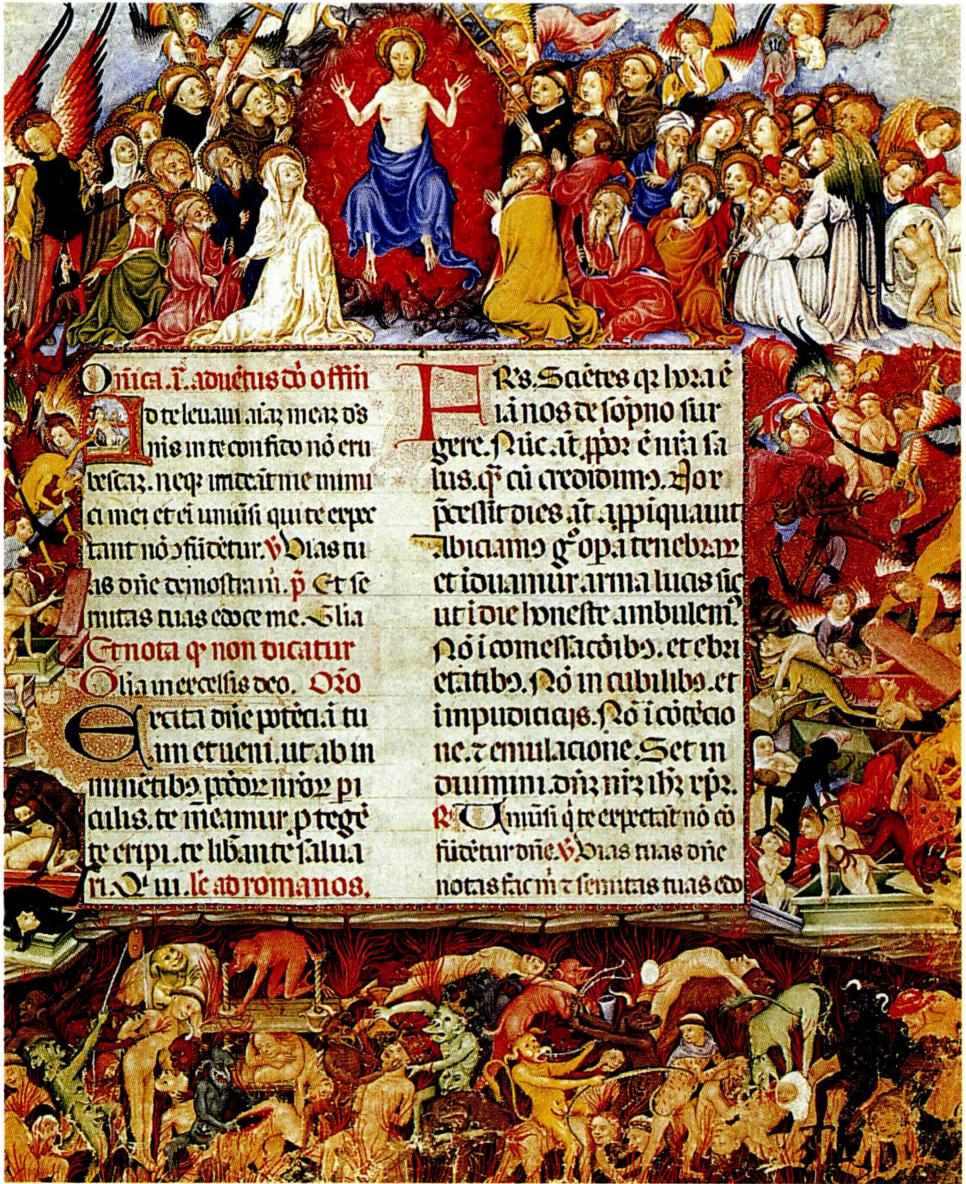 Dñica. i. aduẽtus dõ offiñ
Ad te leuaui aiaȝ meaȝ d̃s
m̃s in te confido nõ eru
bescaȝ. neqȝ irrideãt me inimi
ci mei et ei uniũsi qui te expec
tant nõ ↄfũdetur. ℣ Uias tu
as dñe demostra m̃. p̃ Et se
mitas tuas edoce me. Glia
Et nota qɔ non dicatur
Glia in excelsis deo. Oro
Excita dñe potẽciã tu
am et ueni. ut ab in
minẽtibɔ pc̃cor nr̃or pi
culis. te meamur. ptege
te eripi. te libante salua
ri. Qi ui. lc̃ ad romanos.
FRs. Sciẽtes qr hora ẽ
iã nos de sõpno sur
gere. Nũc at ppor ẽ nr̃a sa
lus. qɔ cũ credidimɔ. Nox
pcessit dies at appiquauit
abiciamɔ gº opa tenebraȝ
et iduamur arma lucis sic
ut i die honeste ambulemɔ
Nõ i comessacõibɔ. et ebri
etatibɔ. Nõ in cubilibɔ. et
impudiciciis. Nõ i cõtẽcio
ne. ⁊ emulacione. Set in
duimini. dñȝ nr̃ȝ ih̃ȝ xp̃ȝ.
℟ Uniũsi q̃ te expectãt nõ cõ
fũdẽtur dñe. ℣ Uias tuas dñe
notas fac m̃ ⁊ semitas tuas edo